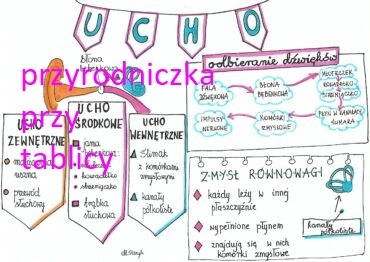 UCHO
błona
bębenkowa
przyrodniczka
przy
tablicy
UCHO
ZEWNĘTRZNE
małżowina
uszna
przewód
słuchowy
UCHO
ŚRODKOWE
jama
bębenkowa:
młoteczek
kowadełko
strzemiączko
trąbka
słuchowa
UCHO
WEWNĘTRZNE
ślimak
z komórkami
zmysłowymi
kanały
półkoliste
odbieranie dźwięków
FALA
DŹWIĘKOWA
BŁONA
BĘBENKOWA
MŁOTECZEK
KOWADEŁKO
STRZEMIĄCZKO
PŁYN W KANAŁE
ŚLIMAKA
KOMÓRKI
ZMYSŁOWE
IMPULSY
NERWOWE
ZMYSŁ RÓWNOWAGI
każdy leży w innej
płaszczyźnie
wypełnione płynem
znajdują się w nich
komórki zmysłowe
kanały
półkoliste